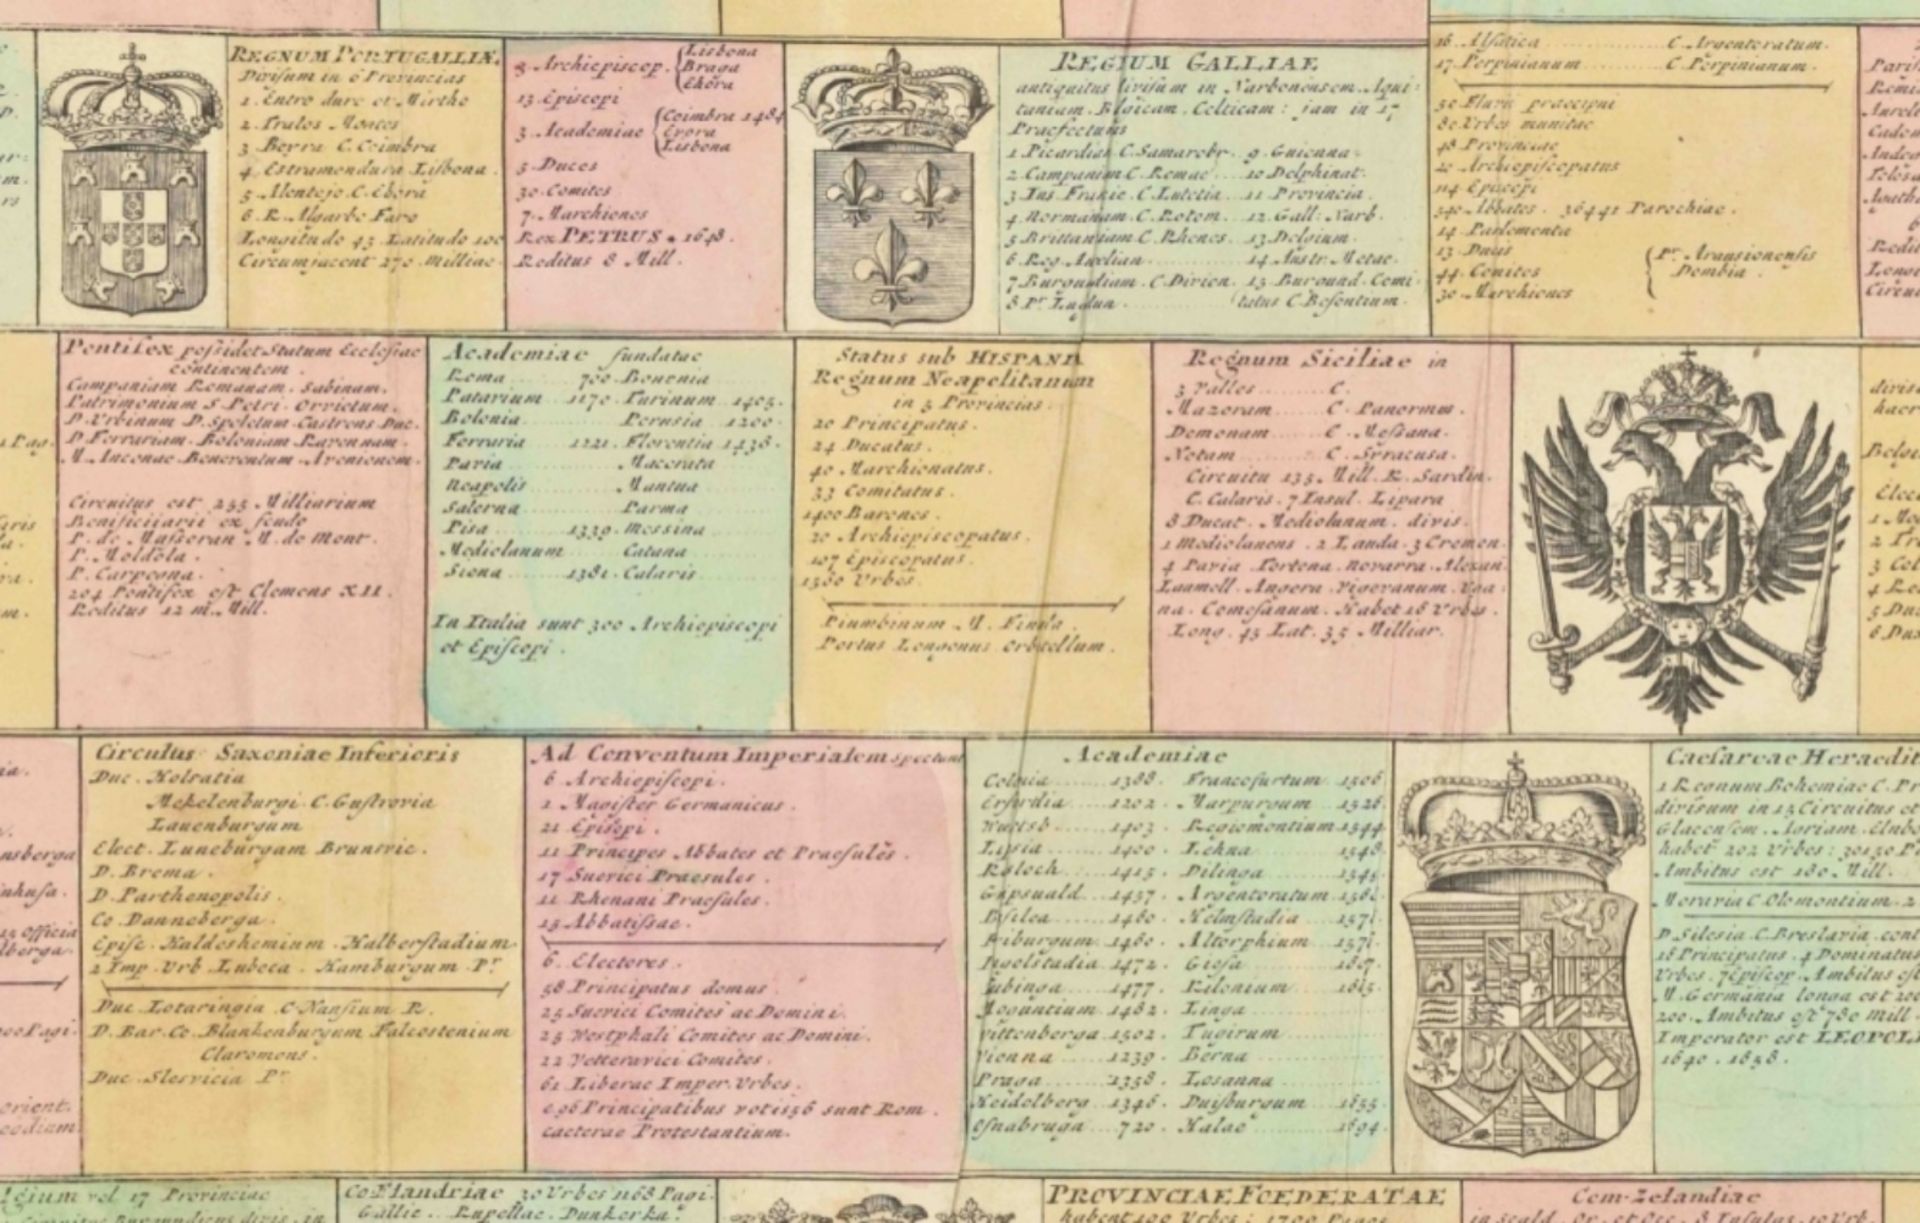 REGNUM PORTUGALLIÆ.
Divisum in 6 Provincias
1. Entro duro et Minho
2. Tralos Montes
3. Beyra C. Coimbra
4. Estramondura Lisbona.
5. Alentejo C. Ebora
6. R. Algarbe Faro
Longitudo 45 Latitudo 100
Circumjacent 270 Milliae.
3. Archiepiscop. Lisbona
Braga
Ebora
13. Episcopi
3. Academiae Coimbra 1484
Evora
Lisbona
5. Duces
30. Comites
7. Marchiones
Rex PETRUS. 1648.
Reditus 8 Mill.
REGIUM GALLIAE
antiquitus divisum in Narbonensem Aqui-
taniam. Blgicam. Celticam: jam in 17
Praefecturis
1. Picardiam C. Samarobr.
2. Campaniam C. Remae
3. Ins. Franie C. Lutetia
4. Normaniam C. Rotom.
5. Brittaniam C. Rhenes.
6. Reg. Aurlian
7. Burgundiam. C. Divion.
8. Pr. Lugdun
9. Guienna
10. Delphinat.
11. Provincia.
12. Gall. Narb.
13. Belgium.
14. Austr. Metae.
15. Burgund. Comi-
tatus C. Besontium.
16. Alsatica C. Argentoratum.
17. Perpinianum C. Perpinianum.
30. Fluvii praecipui
80. Urbes munitae
48. Provinciae
20. Archiepiscopatus
114. Episcopi
540. Abbates. 36441 Parochiae.
14. Parlementa
13. Ducis
44. Comites
30. Marchiones
Pr. Aransionensis
Dombia.
Pontifex possidet Statum Ecclesiae
continentem.
Campaniam Romanam. Sabinam.
Patrimonium S Petri. Orvietum.
D. Urbinum D. Spoletum Castrens Duc.
D. Ferrariam. Boloniam Ravennam.
M. Anconae Beneventum Avenionem.
Circuitus est 255 Milliarium
Benificijarii ex feudo
P. de Masseran M. de Mont.
P. Moldola.
P. Carpegna.
204 Pontifex est Clemens XII.
Reditus 12 m. Mill.
Academiae fundatae
Roma 700
Patavium 1170
Bolonia
Ferraria 1221
Pavia
Neapolis
Salerna
Pisa 1339
Mediolanum
Siena 1381
Bononia
Turinum 1405.
Perusia 1200
Florentia 1438.
Macerata
Mantua
Parma
Messina
Catana
Calaris
In Italia sunt 300 Archiepiscopi
et Episcopi.
Status sub HISPANI
Regnum Neapolitanum
in 5 Provincias.
20 Principatus.
24 Ducatus.
40 Marchionatus.
33 Comitatus.
1400 Barones.
20 Archiepiscopatus.
107 Episcopatus.
1580 Urbes.
Piumbinum M. Finda.
Portus Longonus Orbitellum.
Regnum Siciliae in
3 Valles C.
Mazoram C. Panormus.
Demonam C. Messana.
Notam C. Syracusa.
Circuitu 135 Mill. R. Sardin.
C. Calaris. 7 Insul. Lipara
8. Ducat. Mediolanum. divis.
1 Mediolanens. 2 Lauda. 3 Cremon.
4 Pavia Tortona. Novarra. Alexan.
Laumell. Angora. Vigevanum. Uga-
na. Comesanum. Habet 18 Urbes.
Long. 45 Lat. 35 Milliar.
Circulus Saxoniae Inferioris
Duc. Holsatia
Mekelenburgi. C. Gustrovia
Lauenburgum
Elect. Luneburgam Brunsvic.
D. Brema.
D. Parthenopolis.
Co. Danneberga.
Episc. Haldeshemium Halberstadium
2 Imp. Urb. Lubeca. Hamburgum. Pr
Duc. Lotaringia C. Nansium R.
D. Bar. Co. Blankenburgum Falcostenium
Claromons.
Duc. Slesvicia Pr
Ad Conventum Imperialem spectant
6 Archiepiscopi.
1 Magister Germanicus.
21 Episcopi.
11 Principes Abbates et Praesules.
17 Suevici Praesules.
11 Rhenani Praesules.
15 Abbatissae.
6. Electores.
58 Principatus domus
25 Suevici Comites ac Domini.
25 Westphali Comites ac Domini.
22 Vetteravici Comites.
61 Liberae Imper. Urbes.
e 96 Principatibus votis 56 sunt Rom.
caeterae Protestantium.
Academiae
Colonia 1388.
Erfordia 1202.
Wurtsb 1403.
Lipsia 1400.
Rostoch 1415.
Gripsuald 1457.
Basilea 1460.
Friburgum 1460.
Ingolstadia 1472.
Tubinga 1477
Moguntium 1482.
Vittenberga 1502.
Vienna 1239.
Praga 1358.
Heidelberg 1346.
Osnabruga 720.
Francofurtum 1506
Marpurgum 1526
Regiomontium 1544
Lehna 1548
Dilinga 1549
Argentoratum
Helmstadia
Altorphium
Giesa
Kilonium
Linga
Tugirum
Berna
Losanna
Duisburgum 1655
Halae 1694
Caesareae Heraedit
1 Regnum Bohemiae C. Pr
divisum in 15 Circuitus et
Glacensem. Agriam. Elnbo
habet 202 Urbes: 30150 P
Ambitus est 180 Mill.
Moravia C Olomontium. 2
D. Silesia C. Breslavia. cont
16 Principatus. 4 Dominatus
Urbes. 7 Episcop. Ambitus est
M. Germania longa est 200
200. Ambitus est 780 mill.
Imperator est LEOPOL
1640. 1658.
gium vel 17 Provinciae
Co Flandriae 30 Urbes 1168 Pagi.
Gallic. Rupellae. Dunkerka.
PROVINCIAE FOEDERATAE
habent 100 Urbes: 1700 Pagos
Com. Zelandiae